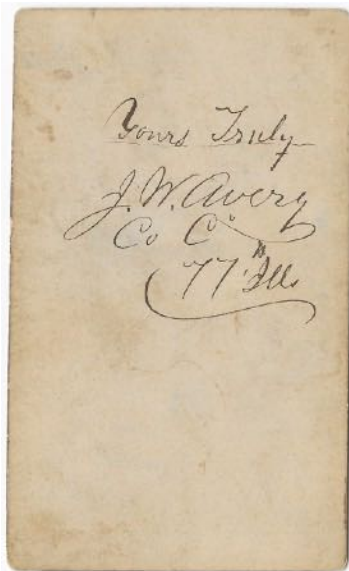 Yours Truly
J. W. Avery
Co C
77th Ills